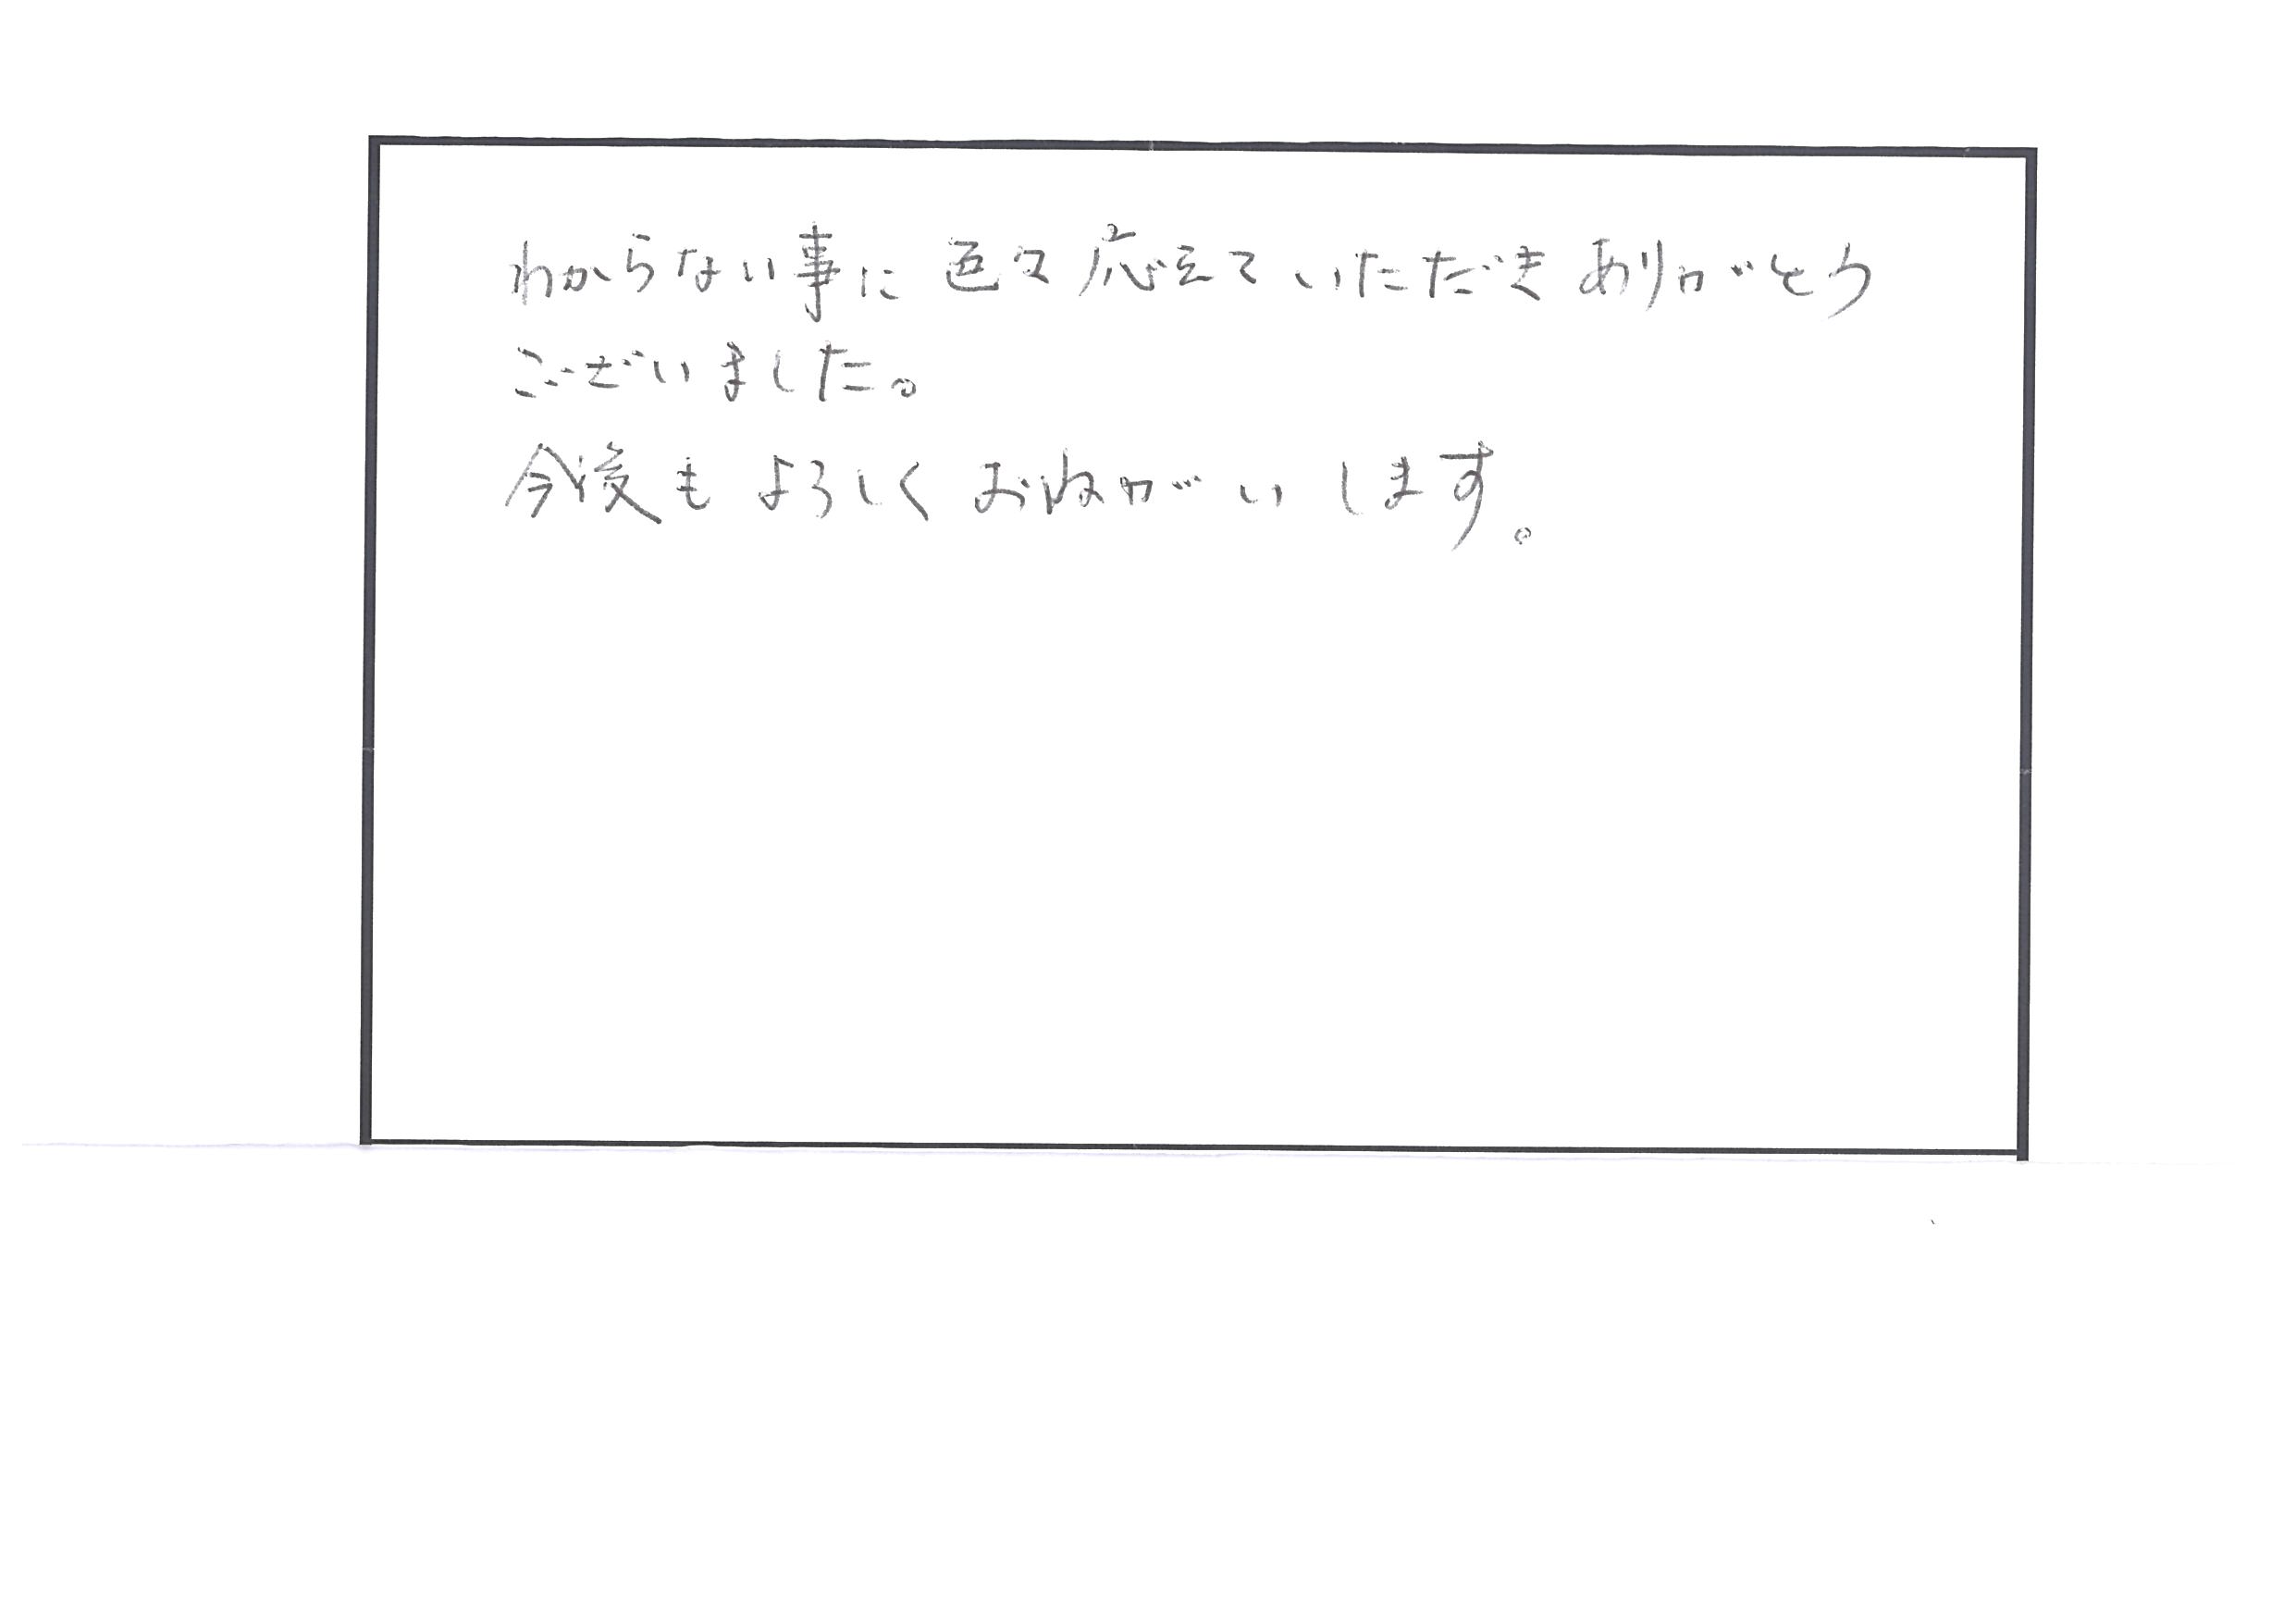 わからない事に色々応えていただきありがとう
ございました。
今後もよろしくおねがいします。